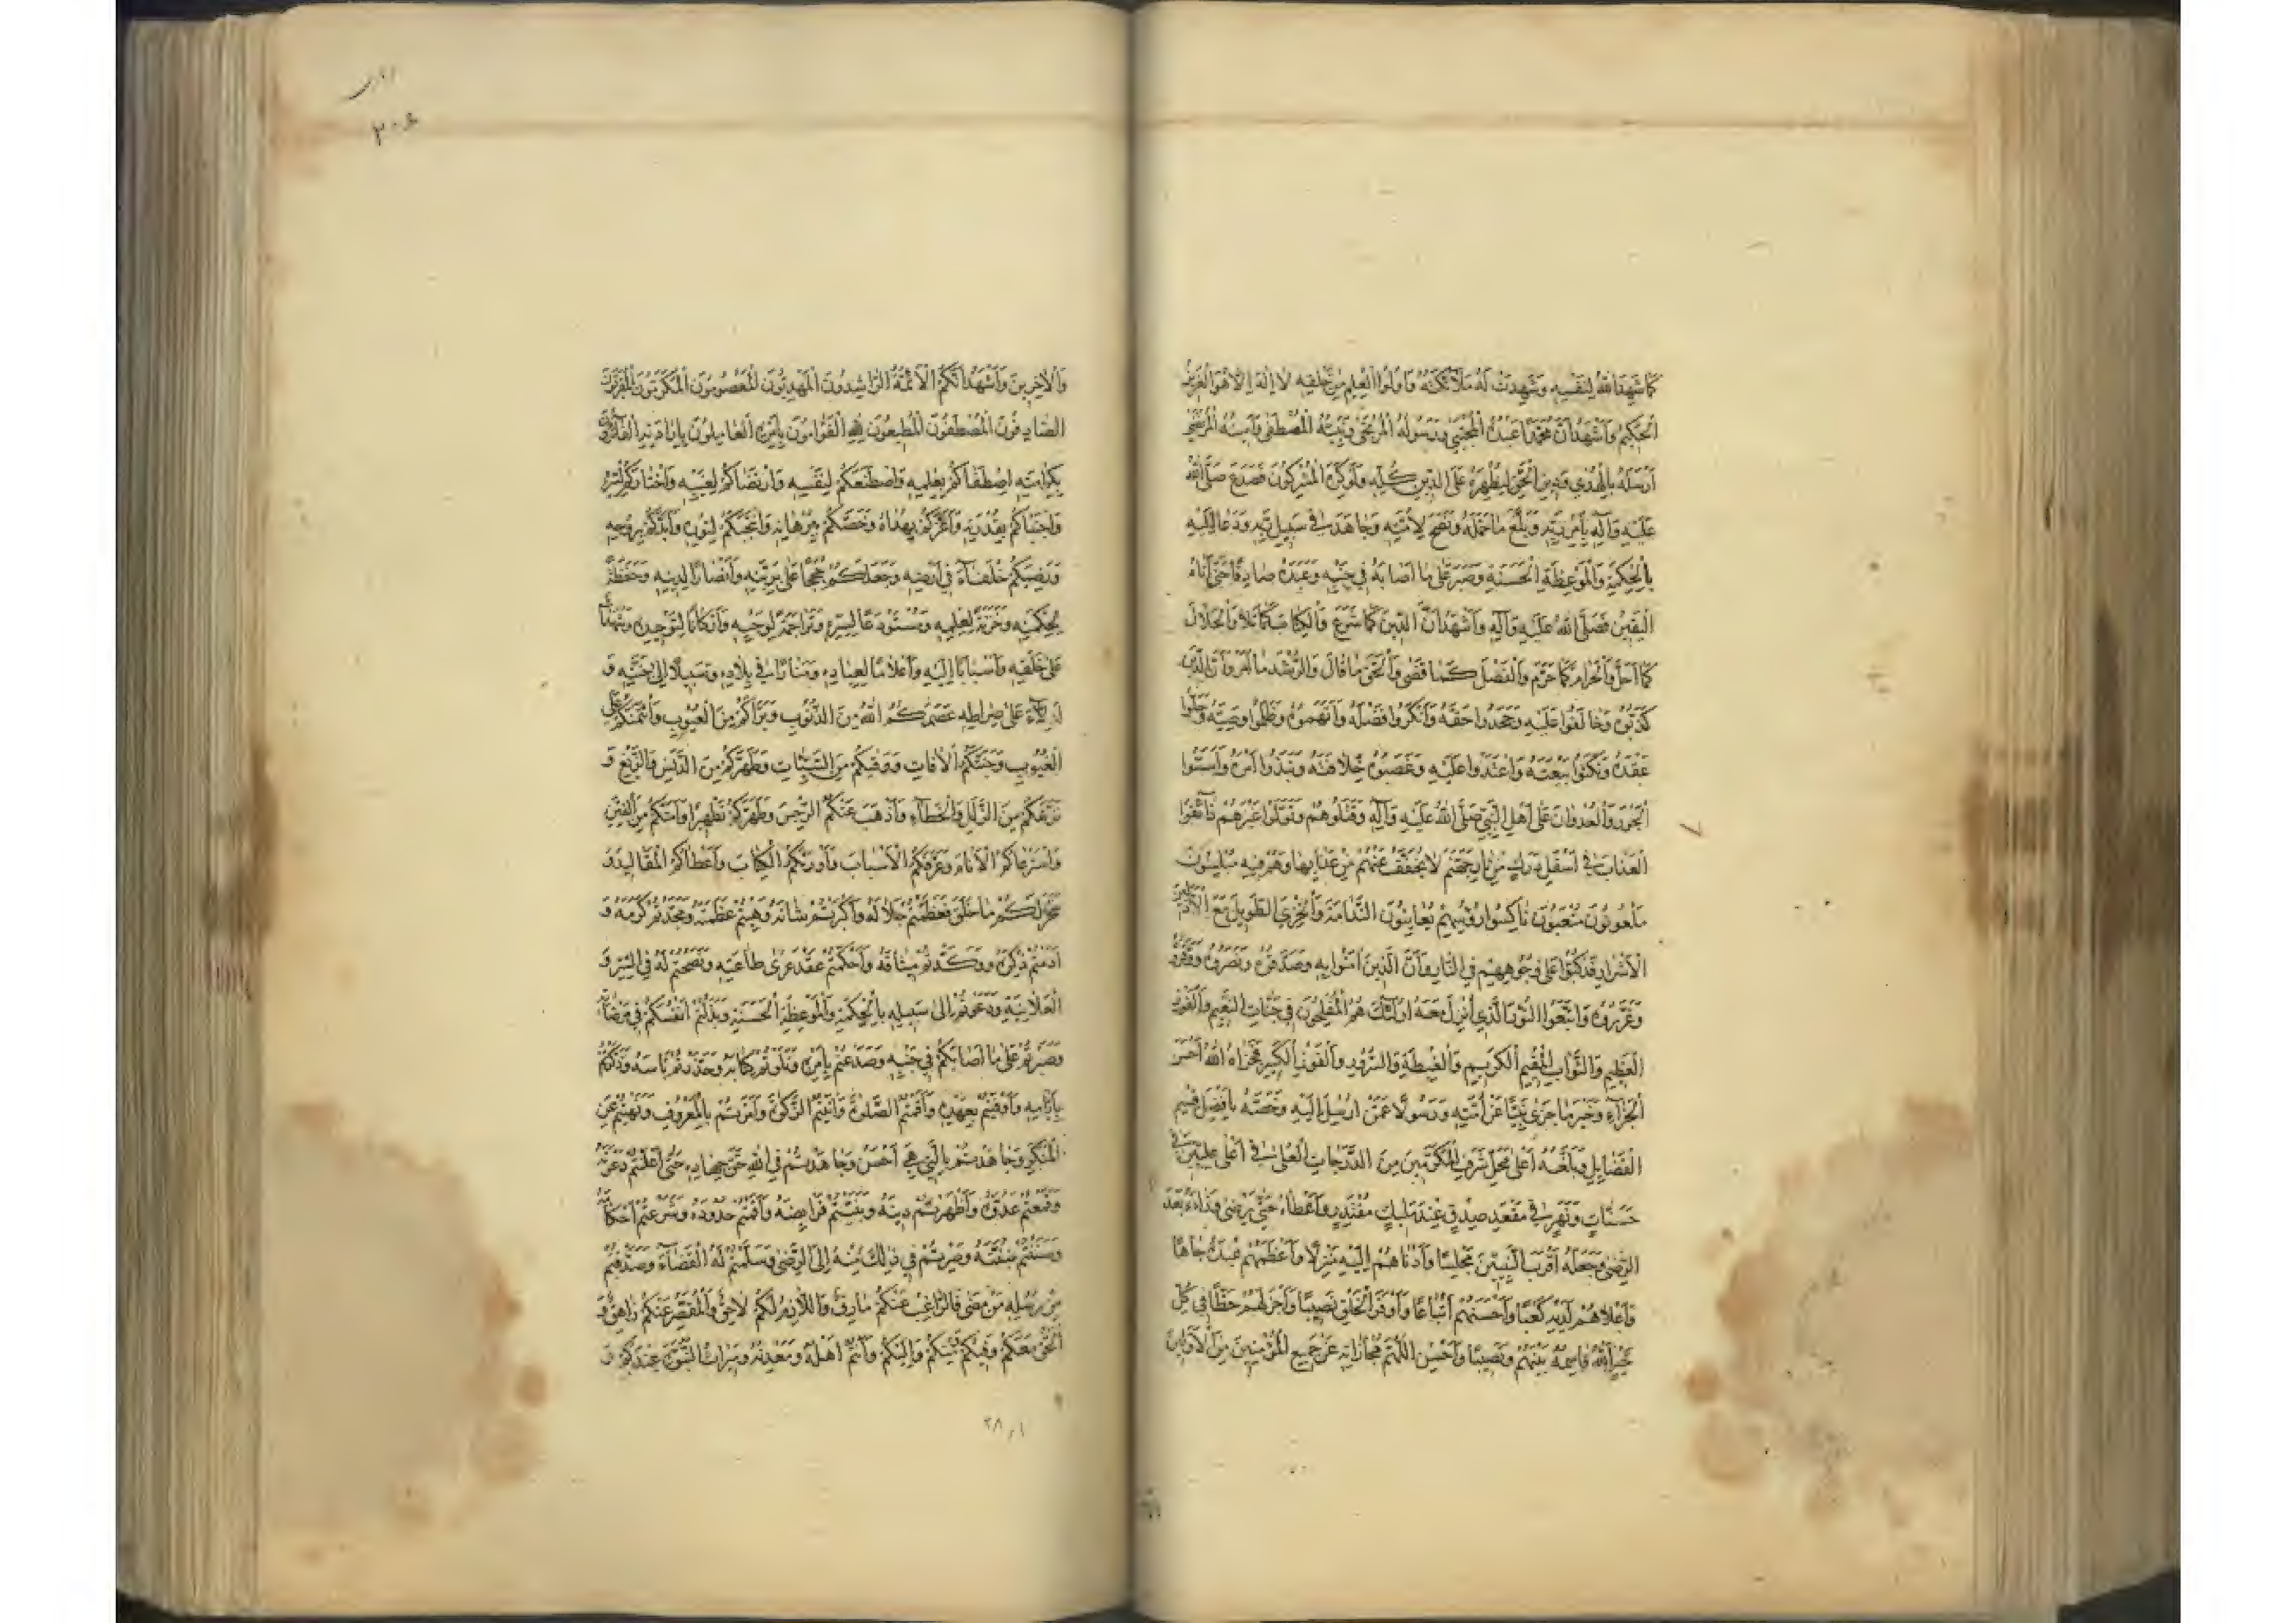 كَمَا شَهِدَ اللهُ لِنَفْسِهِ وَشَهِدَتْ لَهُ مَلَائِكَتُهُ وَأُولُوا الْعِلْمِ مِنْ خَلْقِهِ لَا إِلَهَ إِلَّا هُوَ الْعَزِيزُ
الْحَكِيمُ وَأَشْهَدُ أَنَّ مُحَمَّدًا عَبْدُهُ الْمُجْتَبَى وَرَسُولُهُ الْمُرْتَجَى وَنَبِيُّهُ الْمُصْطَفَى وَأَمِينُهُ الْمُرْتَضَى
أَرْسَلَهُ بِالْهُدَى وَدِينِ الْحَقِّ لِيُظْهِرَهُ عَلَى الدِّينِ كُلِّهِ وَلَوْ كَرِهَ الْمُشْرِكُونَ فَصَدَعَ صَلَّى اللهُ
عَلَيْهِ وَآلِهِ بِأَمْرِ رَبِّهِ وَبَلَّغَ مَا حَمَّلَهُ وَنَصَحَ لِأُمَّتِهِ وَجَاهَدَ فِي سَبِيلِ رَبِّهِ وَدَعَا إِلَيْهِ
بِالْحِكْمَةِ وَالْمَوْعِظَةِ الْحَسَنَةِ وَصَبَرَ عَلَى مَا أَصَابَهُ فِي جَنْبِهِ وَعَبَدَهُ صَادِقًا حَتَّى أَتَاهُ
الْيَقِينُ فَصَلَّى اللهُ عَلَيْهِ وَآلِهِ وَأَشْهَدُ أَنَّ الدِّينَ كَمَا شَرَعَ وَالْكِتَابَ كَمَا تَلَا وَالْحَلَالَ
كَمَا أَحَلَّ وَالْحَرَامَ كَمَا حَرَّمَ وَالْفَضْلَ كَمَا قَضَى وَالْحَقَّ مَا قَالَ وَالرُّشْدَ مَا أَمَرَ وَأَنَّ الَّذِينَ
كَذَّبُوهُ وَخَالَفُوا عَلَيْهِ وَجَحَدُوا حَقَّهُ وَأَنْكَرُوا فَضْلَهُ وَاتَّهَمُوهُ وَظَلَمُوا وَصِيَّهُ وَحَلُّوا
عَقْدَهُ وَنَكَثُوا بَيْعَتَهُ وَاعْتَدَوْا عَلَيْهِ وَغَصَبُوهُ خِلَافَتَهُ وَنَبَذُوا أَمْرَهُ وَأَسَّسُوا
الْجَوْرَ وَالْعُدْوَانَ عَلَى أَهْلِ النَّبِيِّ صَلَّى اللهُ عَلَيْهِ وَآلِهِ وَقَتَلُوهُمْ وَتَوَلَّوْا غَيْرَهُمْ ذَائِقُوا
الْعَذَابِ فِي أَسْفَلِ دَرَكٍ مِنْ نَارِ جَهَنَّمَ لَا يُخَفَّفُ عَنْهُمْ مِنْ عَذَابِهَا وَهُمْ فِيهِ مُبْلِسُونَ
مَلْعُونُونَ مُتْعَبُونَ نَاكِسُوا رُؤُسِهِمْ يُعَايِنُونَ النَّدَامَةَ وَالْخِزْيَ الطَّوِيلَ مَعَ
الْأَشْرَارِ قَدْ كُبُّوا عَلَى وُجُوهِهِمْ فِي النَّارِ وَأَنَّ الَّذِينَ آمَنُوا بِهِ وَصَدَّقُوهُ وَنَصَرُوهُ وَوَقَّرُوهُ
وَعَزَّرُوهُ وَاتَّبَعُوا النُّورَ الَّذِي أُنْزِلَ مَعَهُ أُولَئِكَ هُمُ الْمُفْلِحُونَ فِي جَنَّاتِ النَّعِيمِ وَالْفَوْزِ
الْعَظِيمِ وَالثَّوَابِ الْمُقِيمِ الْكَرِيمِ وَالْغِبْطَةِ وَالسُّرُورِ وَالْفَوْزِ الْكَبِيرِ فَجَزَاهُ اللهُ أَحْسَنَ
الْجَزَاءِ وَخَيْرَ مَا جَزَى نَبِيًّا عَنْ أُمَّتِهِ وَرَسُولًا عَمَّنْ أُرْسِلَ إِلَيْهِ وَخَصَّهُ بِأَفْضَلِ قِسَمِ
الْفَضَايِلِ وَبَلَّغَهُ أَعْلَى مَحَلِّ شَرَفِ الْمُكَرَّمِينَ مِنَ الدَّرَجَاتِ الْعُلَى فِي أَعْلَى عِلِّيِّينَ فِي
جَنَّاتٍ وَنَهَرٍ فِي مَقْعَدِ صِدْقٍ عِنْدَ مَلِيكٍ مُقْتَدِرٍ وَأَعْطَاهُ حَتَّى يَرْضَى وَزَادَهُ بَعْدَ
الرِّضَى وَجَعَلَهُ أَقْرَبَ النَّبِيِّينَ مَجْلِسًا وَأَدْنَاهُمْ إِلَيْهِ مَنْزِلًا وَأَعْظَمَهُمْ عِنْدَهُ جَاهًا
وَأَعْلَاهُمْ لَدَيْهِ كَعْبًا وَأَحْسَنَهُمْ اتِّبَاعًا وَأَوْفَرَ الْخَلْقِ نَصِيبًا وَأَجْزَلَهُمْ حَظًّا فِي كُلِّ
خَيْرٍ اللهُ قَاسِمُهُ بَيْنَهُمْ وَنَصِيبًا وَأَحْسِنِ اللَّهُمَّ مُجَازَاتَهُ عَنْ جَمِيعِ الْمُؤْمِنِينَ مِنَ الْأَوَّلِينَ
٣٠٤
وَالْآخِرِينَ وَأَشْهَدُ أَنَّكُمُ الْأَئِمَّةُ الرَّاشِدُونَ الْمَهْدِيُّونَ الْمَعْصُومُونَ الْمُكَرَّمُونَ الْمُقَرَّبُونَ
الصَّادِقُونَ الْمُصْطَفَوْنَ الْمُطِيعُونَ لِلَّهِ الْقَوَّامُونَ بِأَمْرِهِ الْعَامِلُونَ بِإِرَادَتِهِ الْفَائِزُونَ
بِكَرَامَتِهِ اصْطَفَاكُمْ بِعِلْمِهِ وَاصْطَنَعَكُمْ لِنَفْسِهِ وَارْتَضَاكُمْ لِغَيْبِهِ وَاخْتَارَكُمْ لِسِرِّهِ
وَاجْتَبَاكُمْ بِقُدْرَتِهِ وَأَعَزَّكُمْ بِهُدَاهُ وَخَصَّكُمْ بِبُرْهَانِهِ وَانْتَجَبَكُمْ لِنُورِهِ وَأَيَّدَكُمْ بِرُوحِهِ
وَرَضِيَكُمْ خُلَفَاءَ فِي أَرْضِهِ وَجَعَلَكُمْ حُجَجًا عَلَى بَرِيَّتِهِ وَأَنْصَارًا لِدِينِهِ وَحَفَظَةً
لِحِكْمَتِهِ وَخَزَنَةً لِعِلْمِهِ وَمُسْتَوْدَعًا لِسِرِّهِ وَتَرَاجِمَةً لِوَحْيِهِ وَأَرْكَانًا لِتَوْحِيدِهِ وَشُهَدَاءَ
عَلَى خَلْقِهِ وَأَسْبَابًا إِلَيْهِ وَأَعْلَامًا لِعِبَادِهِ وَمَنَارًا فِي بِلَادِهِ وَسَبِيلًا إِلَى جَنَّتِهِ وَ
أَدِلَّاءَ عَلَى صِرَاطِهِ عَصَمَكُمُ اللهُ مِنَ الذُّنُوبِ وَبَرَّأَكُمْ مِنَ الْعُيُوبِ وَائْتَمَنَكُمْ عَلَى
الْغُيُوبِ وَجَنَّبَكُمُ الْآفَاتِ وَوَقَيكُمْ مِنَ السَّيِّئَاتِ وَطَهَّرَكُمْ مِنَ الدَّنَسِ وَالزَّيْغِ وَ
نَزَّهَكُمْ مِنَ الزَّلَلِ وَالْخَطَاءِ وَأَذْهَبَ عَنْكُمُ الرِّجْسَ وَطَهَّرَكُمْ تَطْهِيرًا وَآمَنَكُمْ مِنَ الْفِتَنِ
وَاسْتَرْعَاكُمُ الْأَنَامَ وَعَرَّفَكُمُ الْأَسْبَابَ وَأَوْرَثَكُمُ الْكِتَابَ وَأَعْطَاكُمُ الْمَقَالِيدَ وَ
سَخَّرَ لَكُمْ مَا خَلَقَ فَعَظَّمْتُمْ جَلَالَهُ وَأَكْبَرْتُمْ شَانَهُ وَهِبْتُمْ عَظَمَتَهُ وَمَجَّدْتُمْ كَرَمَهُ وَ
أَدَمْتُمْ ذِكْرَهُ وَوَكَّدْتُمْ مِيثَاقَهُ وَأَحْكَمْتُمْ عَقْدَ عُرَى طَاعَتِهِ وَنَصَحْتُمْ لَهُ فِي السِّرِّ وَ
الْعَلَانِيَةِ وَدَعَوْتُمْ إِلَى سَبِيلِهِ بِالْحِكْمَةِ وَالْمَوْعِظَةِ الْحَسَنَةِ وَبَذَلْتُمْ أَنْفُسَكُمْ فِي مَرْضَاتِهِ
وَصَبَرْتُمْ عَلَى مَا أَصَابَكُمْ فِي جَنْبِهِ وَصَدَعْتُمْ بِأَمْرِهِ وَتَلَوْتُمْ كِتَابَهُ وَحَذَّرْتُمْ بَاسَهُ وَذَكَّرْتُمْ
بِأَيَّامِهِ وَأَوْفَيْتُمْ بِعَهْدِهِ وَأَقَمْتُمُ الصَّلَوةَ وَآتَيْتُمُ الزَّكَوةَ وَأَمَرْتُمْ بِالْمَعْرُوفِ وَنَهَيْتُمْ عَنِ
الْمُنْكَرِ وَجَاهَدْتُمْ بِالَّتِي هِيَ أَحْسَنُ وَجَاهَدْتُمْ فِي اللهِ حَقَّ جِهَادِهِ حَتَّى أَعْلَنْتُمْ دَعْوَتَهُ
وَقَمَعْتُمْ عَدُوَّهُ وَأَظْهَرْتُمْ دِينَهُ وَبَيَّنْتُمْ فَرَايِضَهُ وَأَقَمْتُمْ حُدُودَهُ وَشَرَعْتُمْ أَحْكَامَهُ
وَسَنَنْتُمْ سُنَّتَهُ وَصِرْتُمْ فِي ذَلِكَ مِنْهُ إِلَى الرِّضَى وَسَلَّمْتُمْ لَهُ الْقَضَاءَ وَصَدَّقْتُمْ
مِنْ رُسُلِهِ مَنْ مَضَى فَالرَّاغِبُ عَنْكُمْ مَارِقٌ وَاللَّازِمُ لَكُمْ لَاحِقٌ وَالْمُقَصِّرُ عَنْكُمْ زَاهِقٌ وَ
الْحَقُّ مَعَكُمْ وَفِيكُمْ وَمِنْكُمْ وَإِلَيْكُمْ وَأَنْتُمْ أَهْلُهُ وَمَعْدِنُهُ وَمِيرَاثُ النُّبُوَّةِ عِنْدَكُمْ وَ